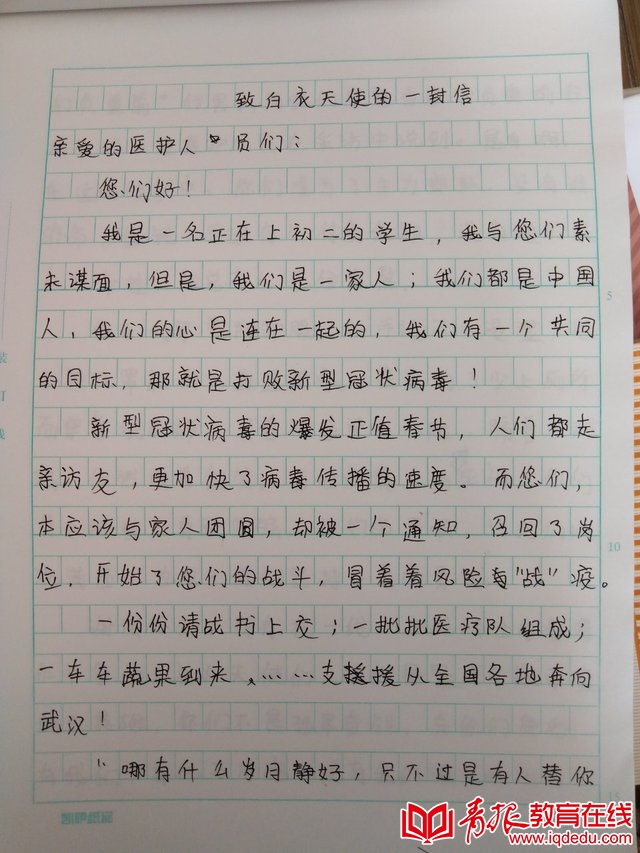 致白衣天使的一封信
亲爱的医护人员们：
您们好！
我是一名正在上初二的学生，我与您们素
未谋面，但是，我们是一家人；我们都是中国
人，我们的心是连在一起的，我们有一个共同
的目标，那就是打败新型冠状病毒！
新型冠状病毒的爆发正值春节，人们都走
亲访友，更加快了病毒传播的速度。而您们，
本应该与家人团圆，却被一个通知，召回了岗
位，开始了您们的战斗，冒着着风险与"战"疫。
一份份请战书上交；一批批医疗队组成；
一车车蔬果到来，……支援援从全国各地奔向
武汉！
"哪有什么岁月静好，只不过是有人替你
5
10
15
装
订
线
凯萨纸品
青报教育在线
www.iqdedu.com